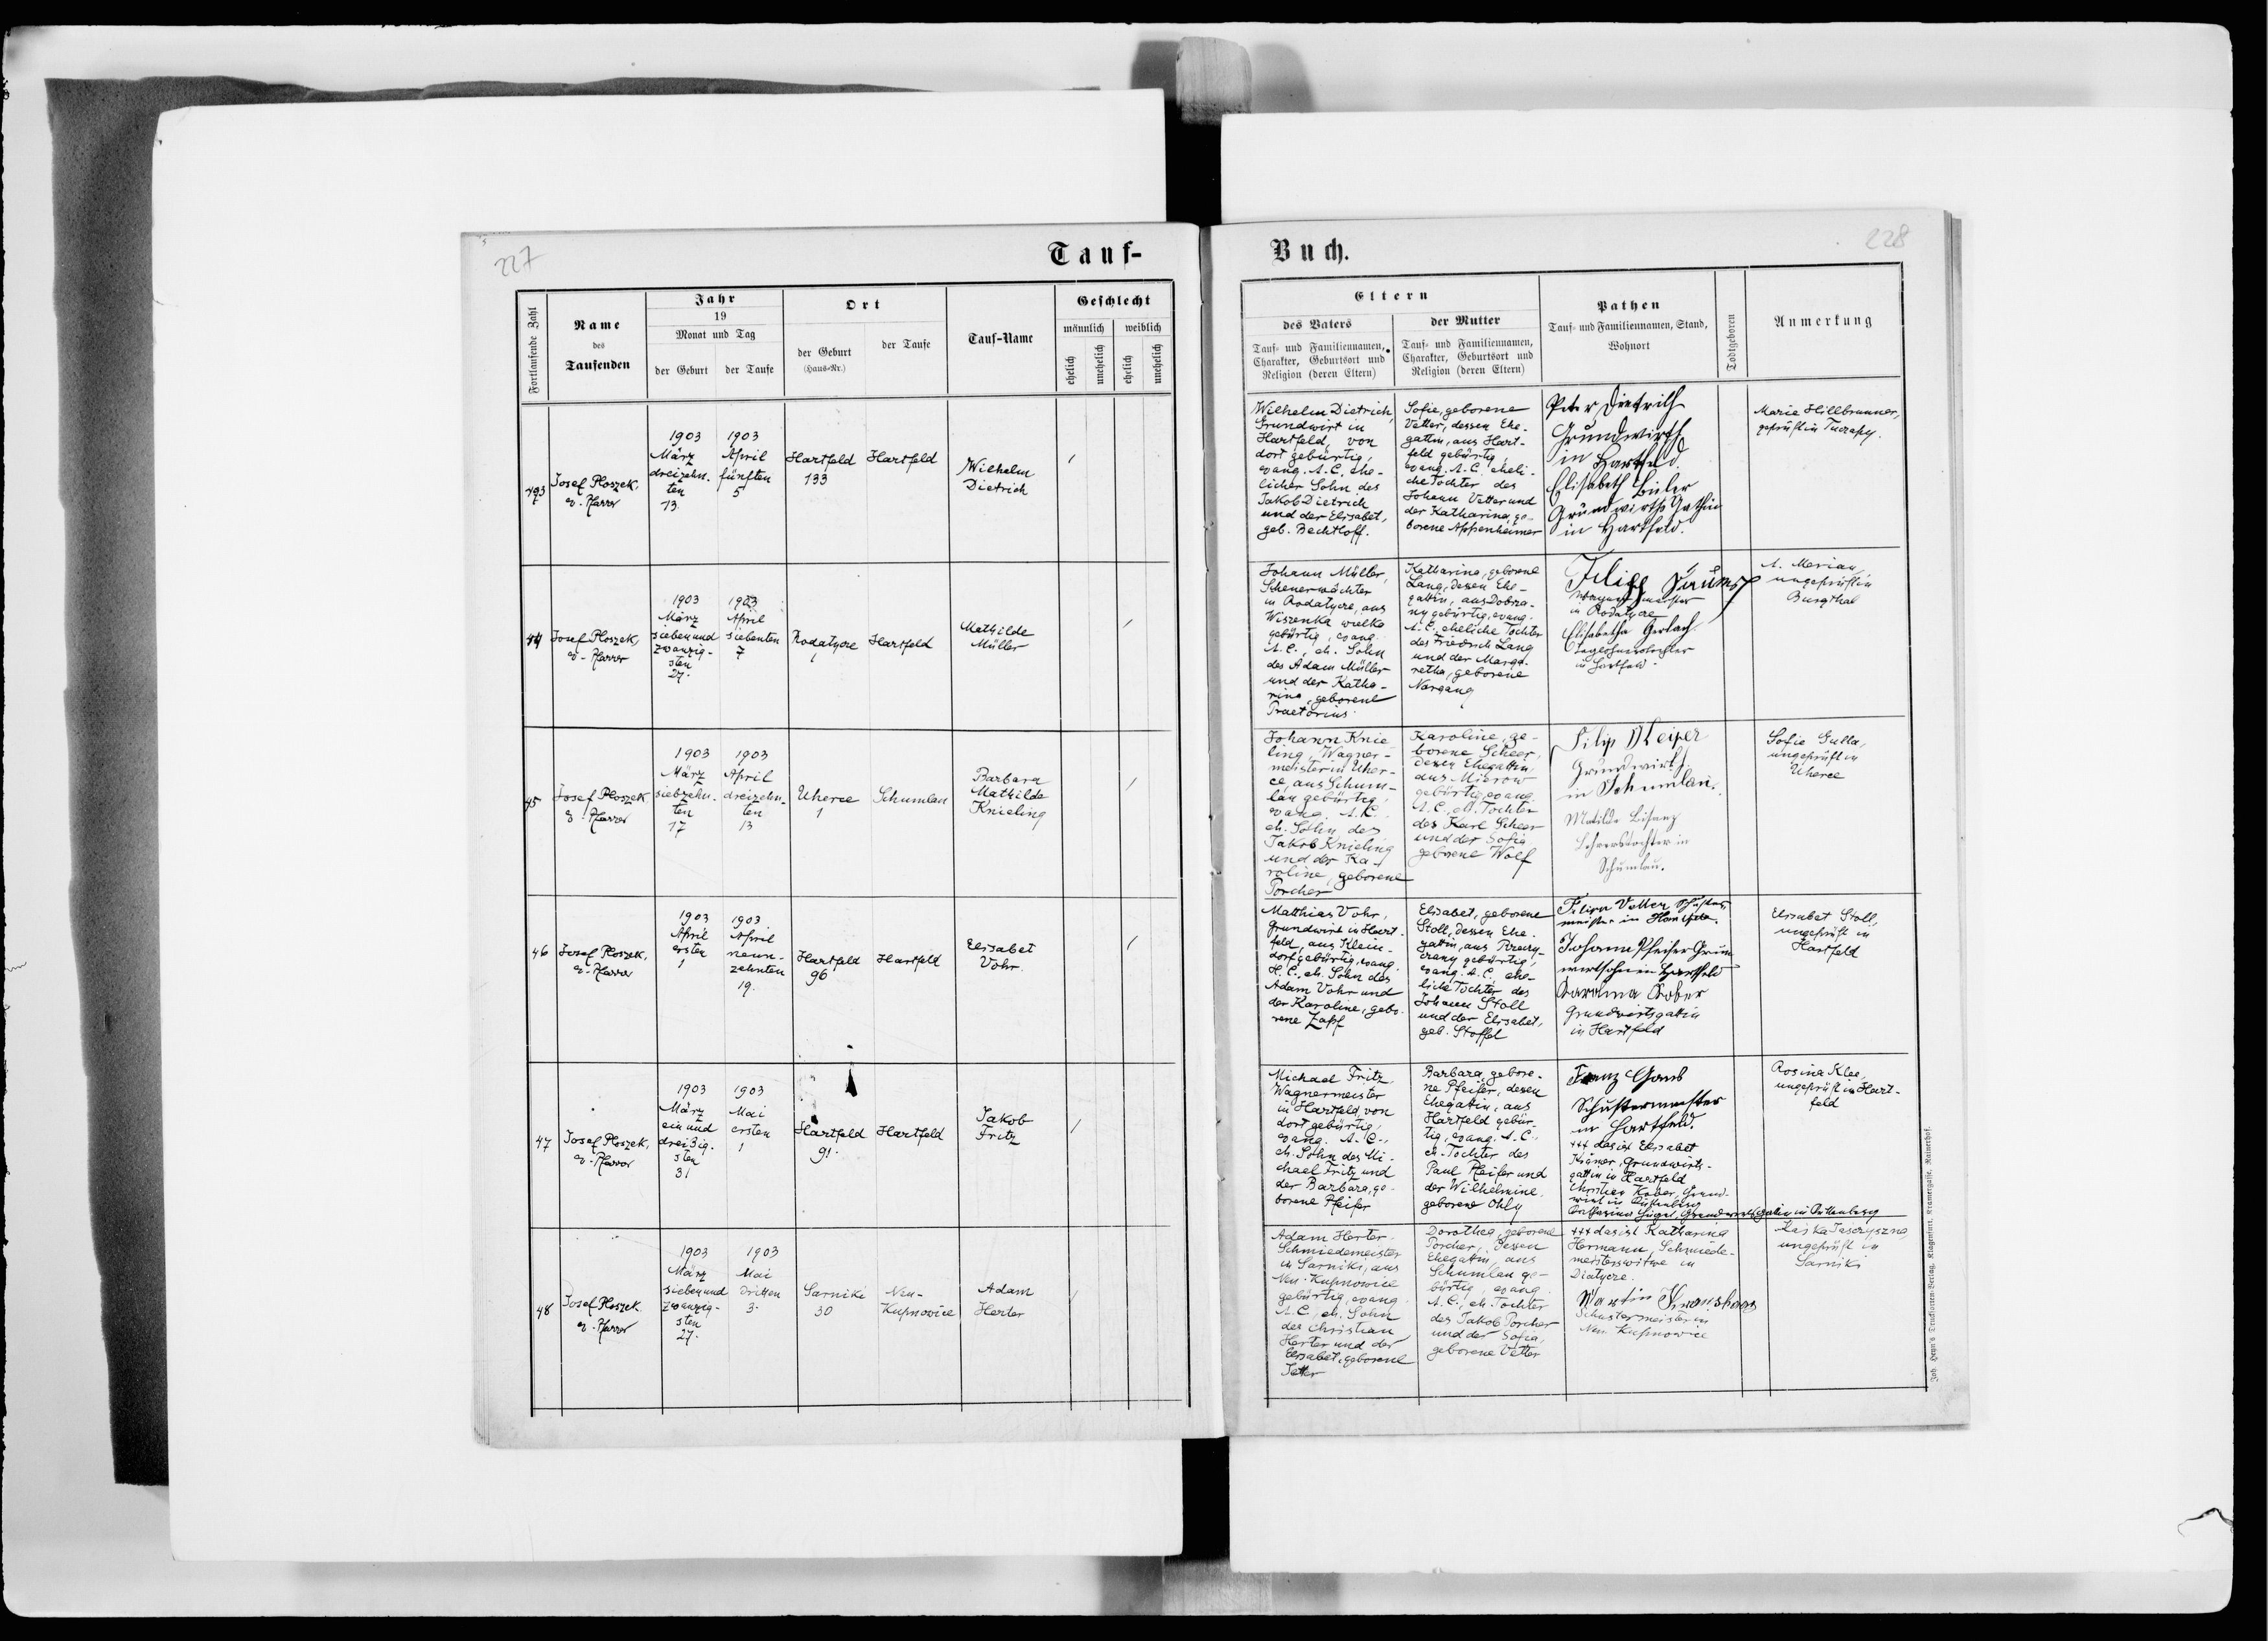 227
Tauf-
Fortlaufende Zahl
Name
des
Taufenden
Jahr
19
Monat und Tag
der Geburt
der Taufe
Ort
der Geburt
(Haus-Nr.)
der Taufe
Tauf-Name
Geschlecht
männlich
weiblich
ehelich
unehelich
ehelich
unehelich
43
Josef Ploszek,
ev. Pfarrer
1903
März
dreizehn-
ten
13
1903
April
fünften
5
Hartfeld
133
Hartfeld
Wilhelm
Dietrich
44
Josef Ploszek,
ev. Pfarrer
1903
März
sieben und
zwanzig-
sten
27.
1903
April
siebenten
7
Rodatycze
1
Hartfeld
Mathilde
Müller
45
Josef Ploszek
ev. Pfarrer
1903
März
siebzehn-
ten
17
1903
April
dreizehn-
ten
13
Uherce
1
Schumlau
Barbara
Mathilde
Knieling
46
Josef Ploszek,
ev. Pfarrer
1903
April
ersten
1
1903
April
neun-
zehnten
19.
Hartfeld
96
Hartfeld
Elisabet
Vohr
47
Josef Ploszek,
ev. Pfarrer
1903
März
ein und
dreißig-
sten
31
1903
Mai
ersten
1
Hartfeld
91.
Hartfeld
Jakob
Fritz
48
Josef Ploszek
ev. Pfarrer
1903
März
sieben und
zwanzig-
sten
27.
1903
Mai
dritten
3.
Sarniki
30
Neu-
Kupnowice
Adam
Herter
228
Buch.
Eltern
des Vaters
Tauf- und Familiennamen,
Charakter, Geburtsort und
Religion (deren Eltern)
der Mutter
Tauf- und Familiennamen,
Charakter, Geburtsort und
Religion (deren Eltern)
Pathen
Tauf- und Familiennamen, Stand,
Wohnort
Todtgeboren
Anmerkung
Wilhelm Dietrich,
Grundwirt in
Hartfeld, von
dort gebürtig,
evang. A.C. ehe-
licher Sohn des
Jakob Dietrich
und der Elisabet,
geb. Bechtloff.
Sofie, geborene
Vetter, dessen Ehe-
gattin, aus Hart-
feld gebürtig,
evang. A.C. eheli-
che Tochter des
Johann Vetter und
der Katharina, ge-
borene Appenheimer
Peter Dietrich
Grundwirth
in Hartfeld.
Elisabeth Bisler
Grundwirths Gathin
in Hartfeld.
Marie Hillbrunner,
geprüft in Tuczapy.
Johann Müller,
Scheuerwächter
in Rodatycze, aus
Wiszenka wielka
gebürtig, evang.
A.C., eh. Sohn
des Adam Müller
und der Katha-
rina, geborene
Praetorius
Katharina, geborene
Lang, dessen Ehe-
gattin, aus Dobrza-
ny gebürtig, evang.
A.C. eheliche Tochter
des Friedrich Lang
und der Marga-
retha, geborene
Nargang
Filipp
in Rodatycze
Elisabetha Gerlach
Taglöhnerstochter
in Hartfeld.
A. Merian,
ungeprüft in
Burgthal
Johann Knie-
ling, Wagner-
meister in Uher-
ce, aus Schum-
lau gebürtig,
evang. A.C.
eh. Sohn des
Jakob Knieling
und der Ka-
roline, geborene
Porcher
Karoline, ge-
borene Scheer,
dessen Ehegattin,
aus Mierow
gebürtig, evang.
A.C., eh. Tochter
des Karl Scheer
und der Sofia
geborene Wolf
Filip
Grundwirth
in Schumlau.
Matilde Bisanz
Lehrerstochter in
Schumlau.
Sofie Gulla,
ungeprüft in
Uherce
Matthias Vohr,
Grundwirt in Hart-
feld, aus Klein-
dorf gebürtig, evang.
H.C., eh. Sohn des
Adam Vohr und
der Karoline, gebo-
rene Zapf
Elisabet, geborene
Stoll, dessen Ehe-
gattin, aus
gebürtig,
evang. A.C. ehe-
liche Tochter des
Johann Stoll
und der Elisabet,
geb. Stoffel
Filipp Vetter Schuster
meister in Hartfeld.
Johann Pfeifer Grund
wirtsohn in Hartfeld
Kober
Grundwirtsgattin
in Hartfeld
Elisabet Stoll,
ungeprüft in
Hartfeld
Michael Fritz
Wagnermeister
in Hartfeld, von
dort gebürtig,
evang. A.C.,
eh. Sohn des Mi-
chael Fritz und
der Barbara, ge-
borene Pfeifer
Barbara, gebore-
ne Pfeifer, dessen
Ehegattin, aus
Hartfeld gebür-
tig, evang. A.C.,
eh. Tochter des
Paul Pfeifer und
der Wilhelmine,
geborene Ohly
Franz
Schustermeister
in Hartfeld.
+++ das ist Elisabet
Krämer, Grundwirts-
gattin in Hartfeld
Christian Kober, Grund-
wirt in Ottenberg
Rosina Klee,
ungeprüft in Hart-
feld
Adam Herter
Schmiedemeister
in Sarniki, aus
Neu-Kupnowice
gebürtig, evang.
A.C., eh. Sohn
des Christian
Herter und der
Elisabet, geborene
Dorothea, geborene
Porcher, dessen
Ehegattin, aus
Schumlau ge-
bürtig, evang.
A.C., eh. Tochter
des Jakob Porcher
und der Sofia,
geborene Vetter
+++ das ist Katharina
Hermann, Schmiede-
meisterswitwe in
Diatycze.
Martin
Schustermeister in
Neu Kupnowice
ungeprüft in
Sarniki
Joh. Heyn's Drucksorten-Verlag, Klagenfurt, Kramergasse, Rainerhof.